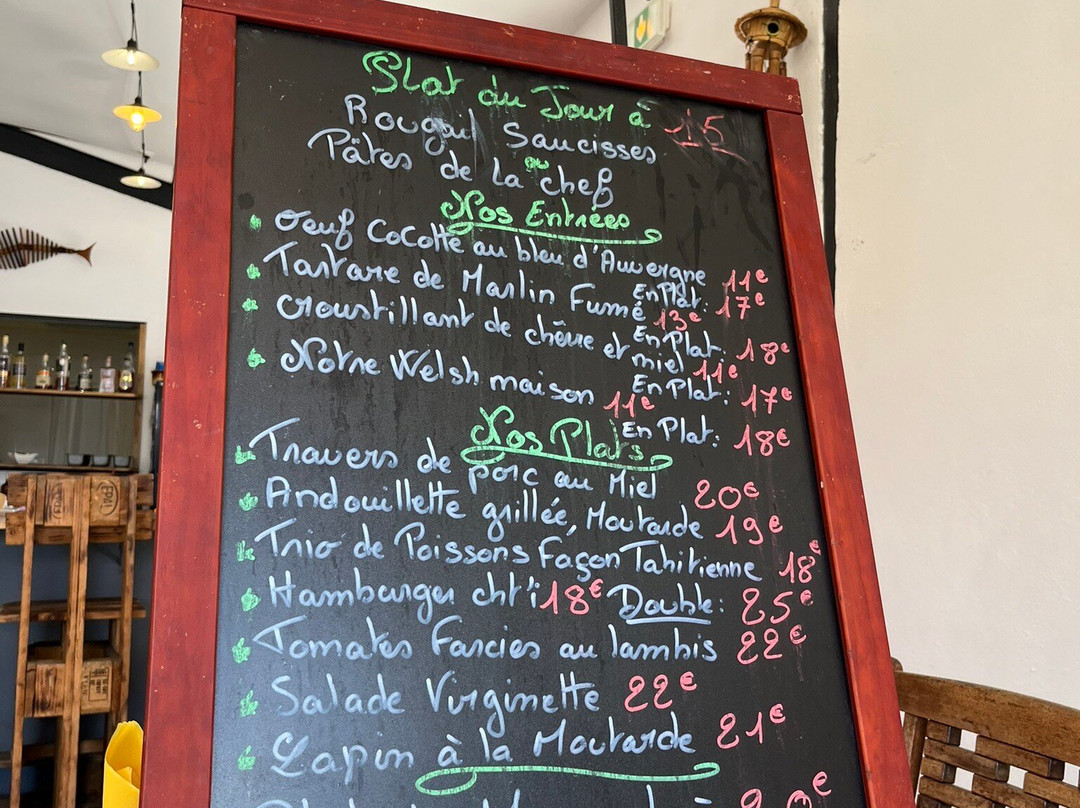 Plat du Jour à 15
Rougail Saucisses
ou
Pâtes de la chef
Nos Entrées
Oeuf Cocotte au bleu d'Auvergne 11€
En Plat: 17€
Tartare de Marlin Fumé 13€
En Plat: 18€
Croustillant de chèvre et miel 11€
En Plat: 17€
Notre Welsh maison 11€
En Plat: 18€
Nos Plats
Travers de porc au Miel 20€
Andouillette grillée, Moutarde 19€
Trio de Poissons Façon Tahitienne 18€
Hamburger cht'i 18€ Double: 25€
Tomates Farcies au lambis 22€
Salade Virginette 22€
Lapin à la Moutarde 21€